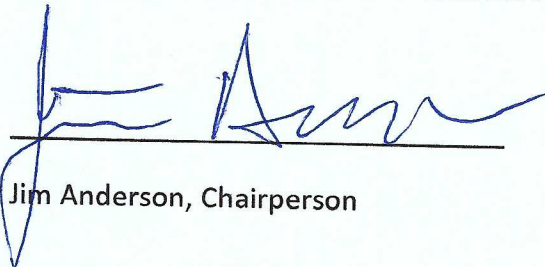 Jim Anderson, Chairperson